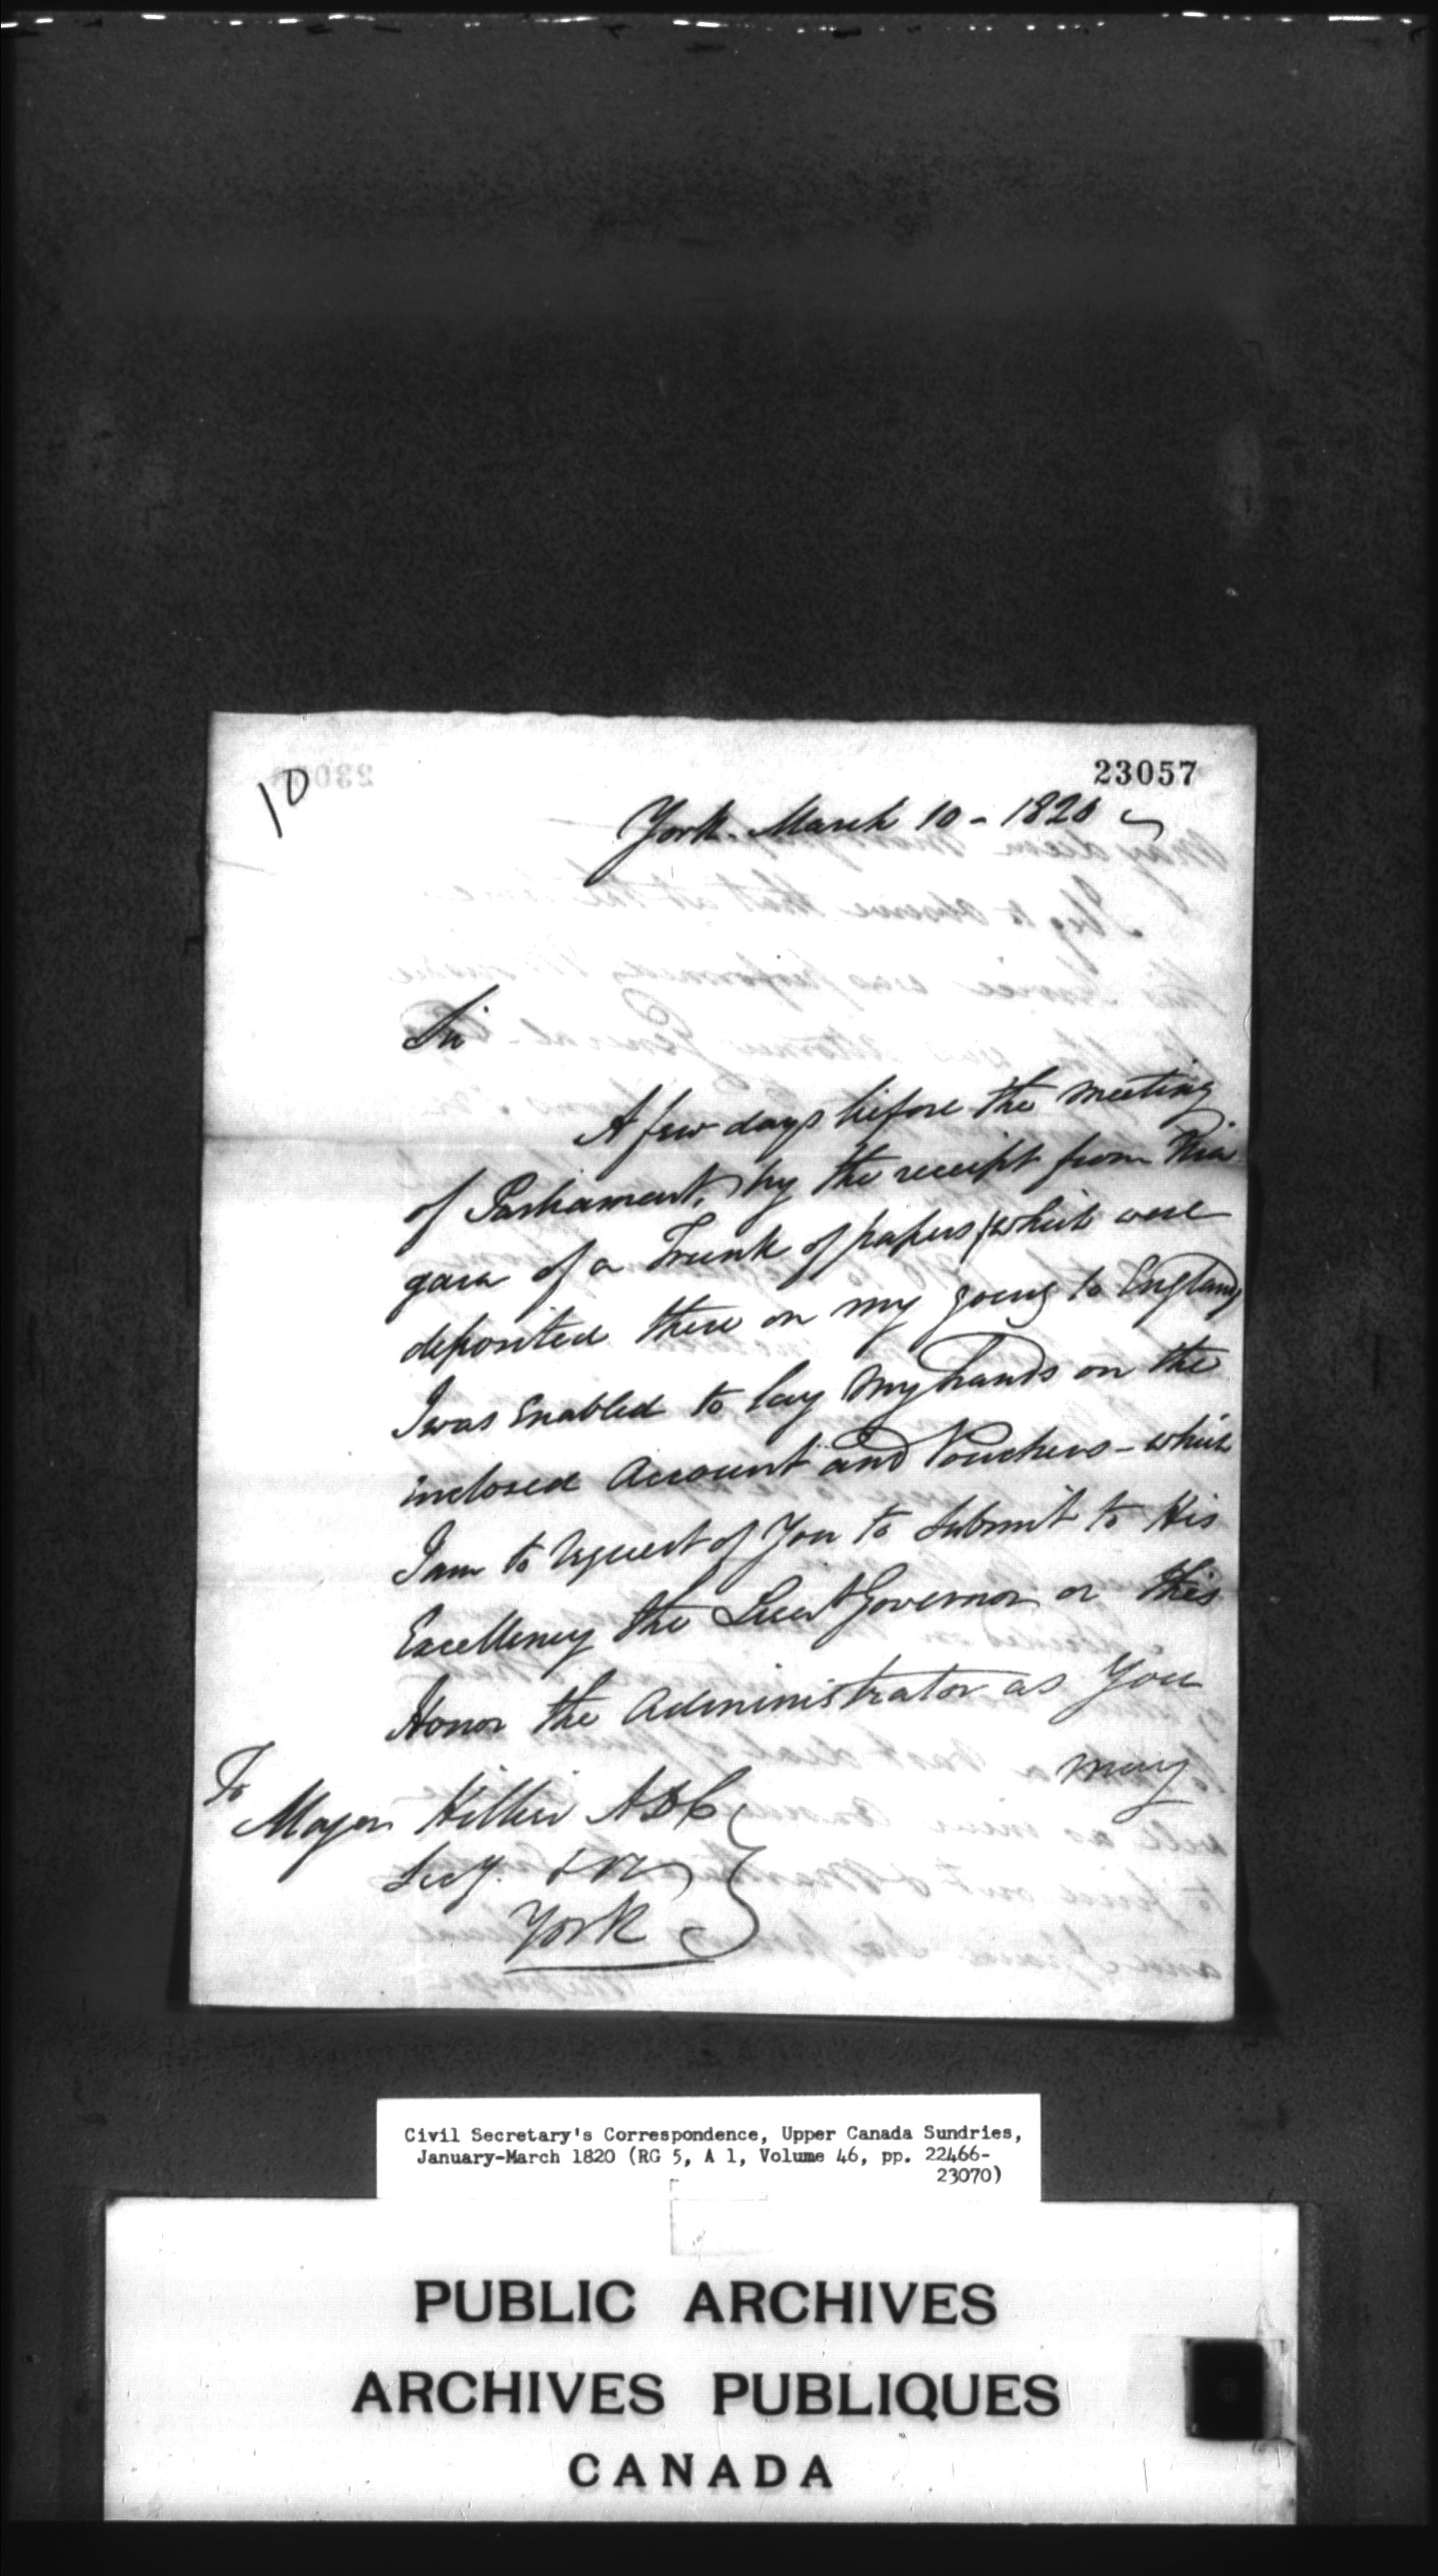 10
23057
York. March 10 - 1820
Sir
A few days before the meeting
of Parliament, by the receipt from Nia
gara of a Trunk of papers (which were
deposited there on my going to England)
I was Enabled to lay My hands on the
inclosed Account and Vouchers - which
I am to request of You to Submit to His
Excellency the Lieut Governor or His
Honor the Administrator as You
may
To
Major Hillier ADC
Secy. &c
York
Civil Secretary's Correspondence, Upper Canada Sundries,
January-March 1820 (RG 5, A 1, Volume 46, pp. 22466-
23070)
PUBLIC ARCHIVES
ARCHIVES PUBLIQUES
CANADA